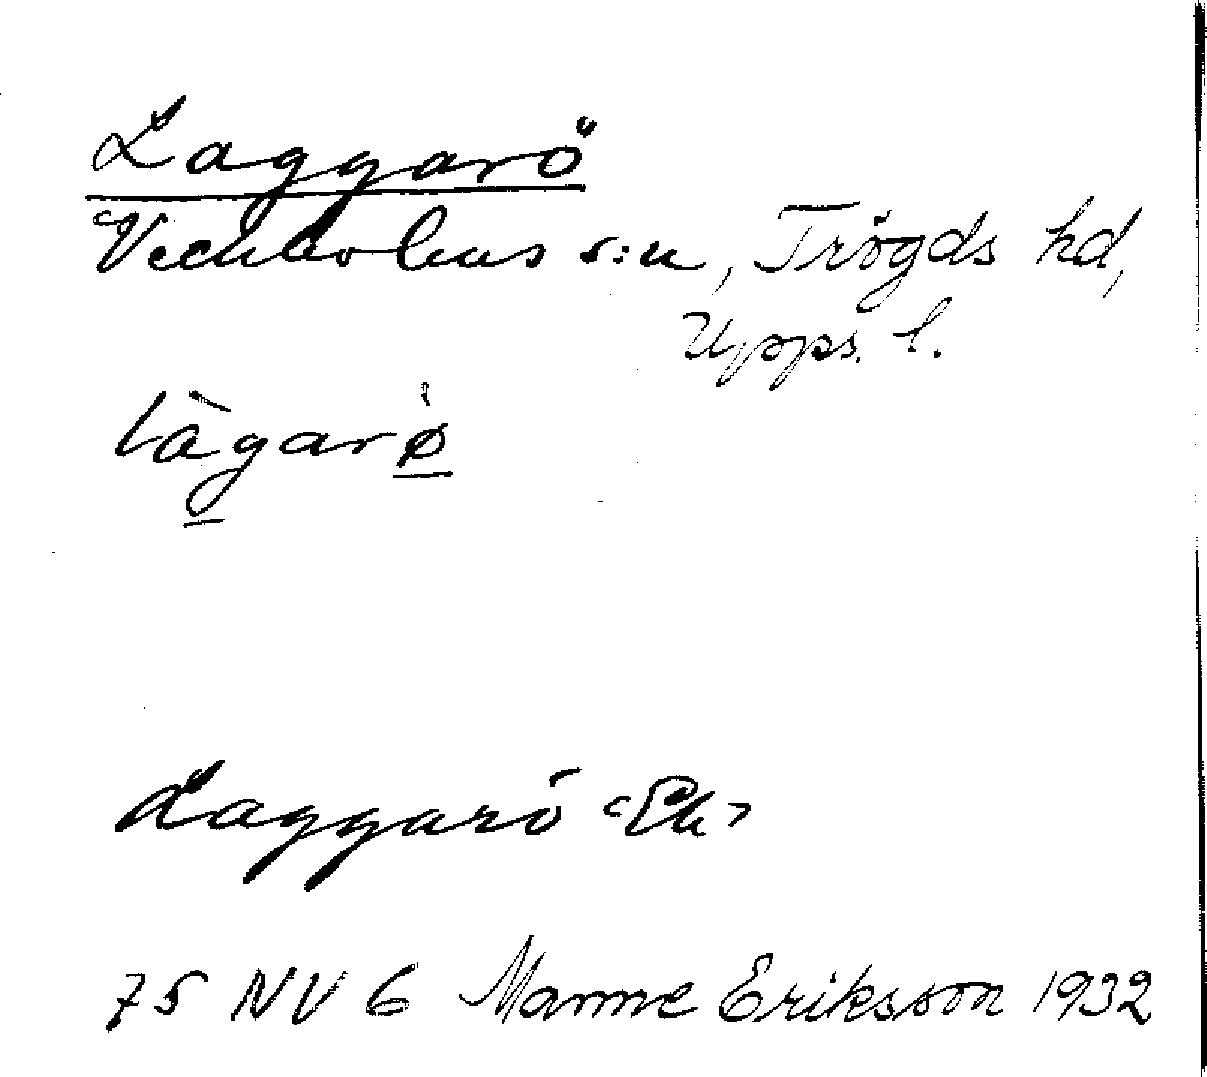 Laggarö
Veckholms s:n, Trögds hd,
Upps. l.
làgarø̀
Laggarö <Ek>
75 NV 6 Manne Eriksson 1932